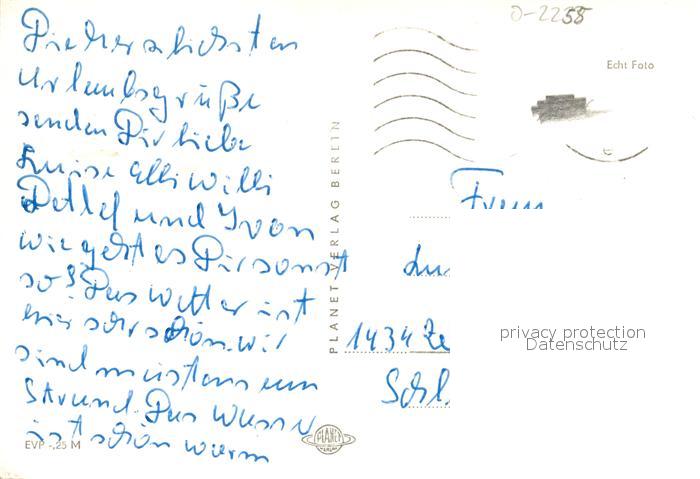 Die herzlichsten
Urlaubsgrüße
senden Dir liebe
Luise Elli Willi
Detlef und Yvon
wie geht es Dir sonst
so? Das Wetter ist
hier sehr schön. wir
sind meistens am
Strand. Das Wasser
ist schön warm
EVP -,25 M
PLANET-VERLAG BERLIN
PLANET
VERLAG
0-2258
Echt Foto
Frau
Lu
1434 Ze
Schl.
privacy protection
Datenschutz